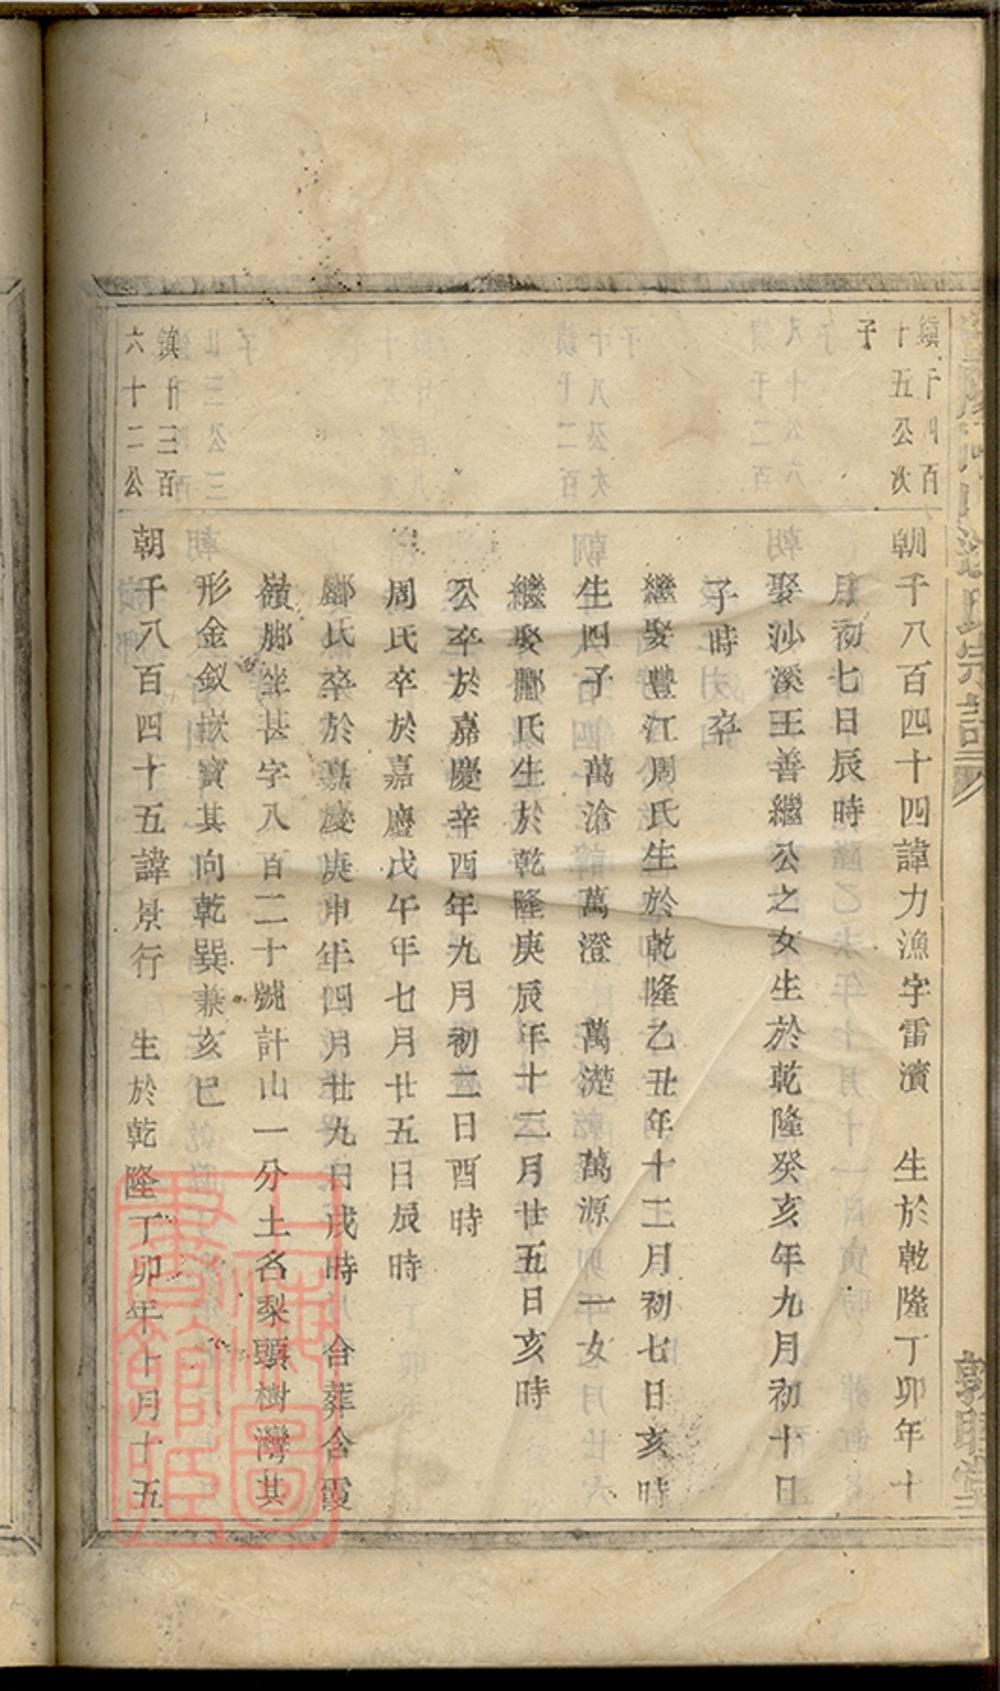 十五公次
子
朝千八百四十四諱力漁字雷濱　生於乾隆丁卯年十
月初七日辰時
娶沙溪王善繼公之女生於乾隆癸亥年九月初十日
子時　卒
繼娶豐江周氏生於乾隆乙丑年十二月初七日亥時
生四子　萬滄　萬澄　萬濋　萬源　一女
繼娶酈氏生於乾隆庚辰年十二月廿五日亥時
公卒於嘉慶辛酉年九月初二日酉時
周氏卒於嘉慶戊午年七月廿五日辰時
酈氏卒於嘉慶庚申年四月廿九日戌時　合葬含霞
嶺腳坐甚字八百二十號計山一分土名梨頭樹灣其
形金釵嵌寶其向乾巽兼亥巳
鎮廿三百
六十二公
朝千八百四十五諱景行　生於乾隆丁卯年十月十五
氏宗譜
敦睦堂
上海圖書館藏